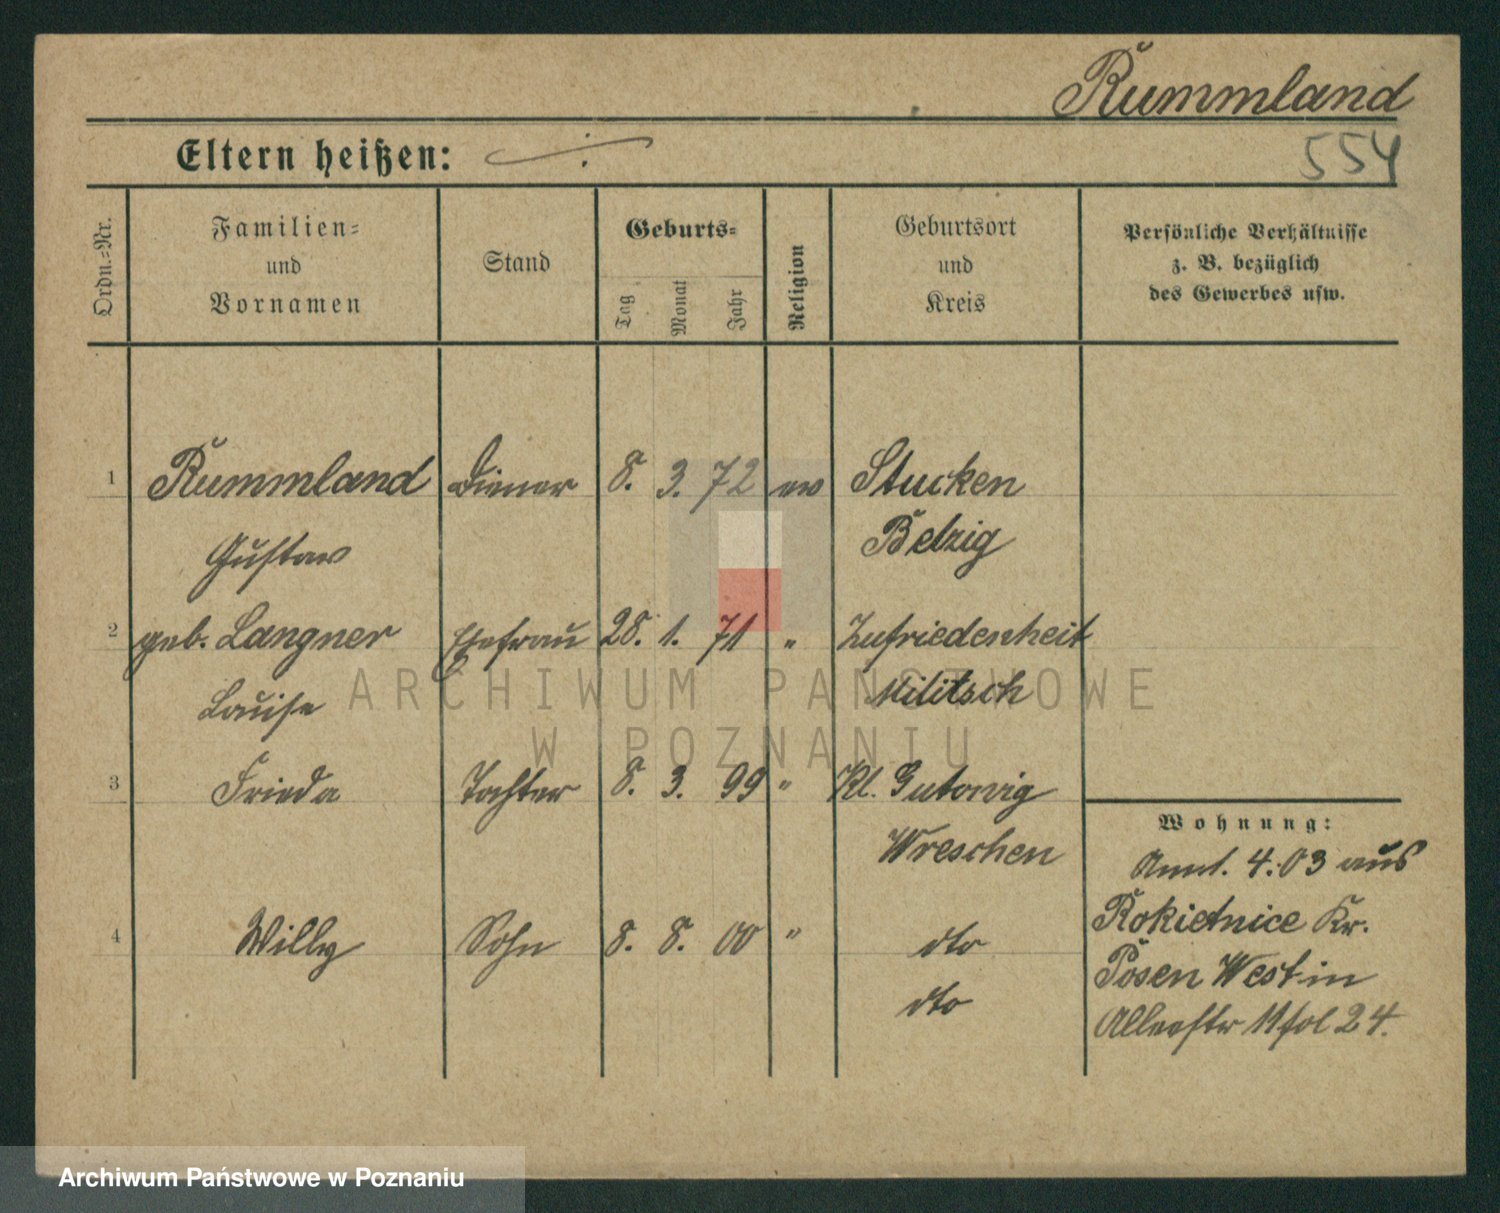 Rummland
554
Eltern heißen: ./.
Ordn.-Nr.
Familien-
und
Vornamen
Stand
Geburts-
Tag
Monat
Jahr
Religion
Geburtsort
und
Kreis
Persönliche Verhältnisse
z. B. bezüglich
des Gewerbes usw.
1 Rummland Diener 8. 3. 72 ev Stucken
Gustav Belzig
2 geb. Langner Ehefrau 28. 1. 71 " Zufriedenheit
Louise Militsch
3 Frieda Tochter 8. 3. 99 " Kl. Gutowig
Wreschen
4 Willy Sohn 8. 8. 00 " dto
dto
Wohnung:
Anml. 4.03 aus
Rokietnice Kr.
Posen West in
11 fol 24.
ARCHIWUM PAŃSTWOWE
W POZNANIU
Archiwum Państwowe w Poznaniu